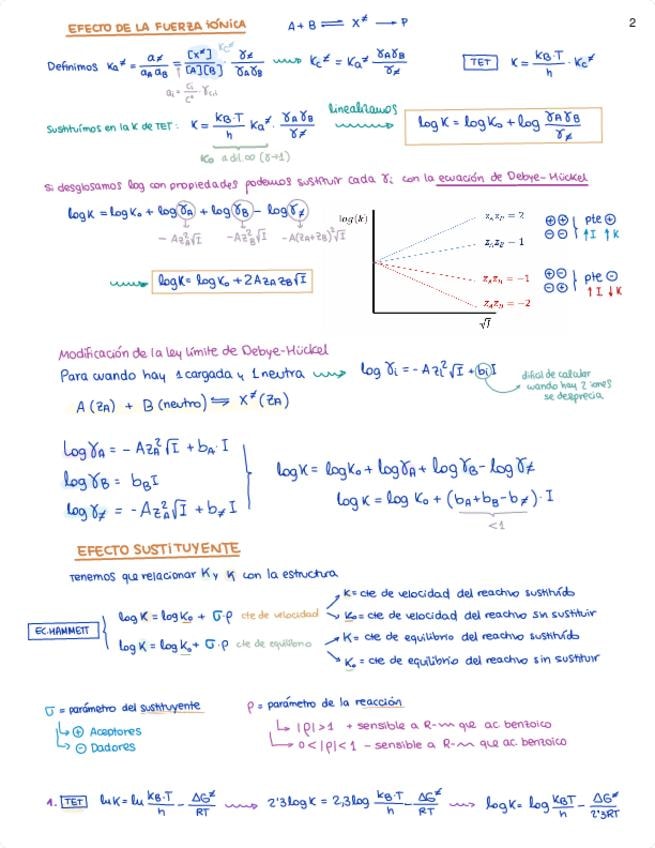 EFECTO DE LA FUERZA IÓNICA A + B ⇌ X≠ → P
2
Definimos Ka≠ = a≠ / aA aB = [X≠] / [A][B] Kc≠ · γ≠ / γAγB ⇝ Kc≠ = Ka≠ γAγB / γ≠ TET K = KB·T / h · Kc≠
ai = ci / c° · γc,i
Sustituimos en la K de TET: K = KB·T / h Ka≠ · γAγB / γ≠ linealizamos ⇝ log K = log K0 + log γAγB / γ≠
K0 a dil. ∞ (γ→1)
Si desglosamos log con propiedades podemos sustituir cada γi con la ecuación de Debye-Hückel
log K = log K0 + log γA + log γB - log γ≠
- AzA²√I -AzB²√I -A(zA+zB)²√I
⇝ log K = log K0 + 2AzAzB√I
log(k)
zAzB = 2
zAzB = 1
zAzB = −1
zAzB = −2
√I
⊕⊕ pte ⊕
⊖⊖ ↑I ↑K
⊕⊖ pte ⊖
⊖⊕ ↑I ↓K
Modificación de la ley límite de Debye-Hückel
Para cuando hay 1 cargada y 1 neutra ⇝ log γi = - Azi²√I + biI
difícil de calcular
cuando hay 2 iones
se desprecia
A (zA) + B (neutro) ⇌ X≠ (zA)
log γA = - AzA²√I + bA·I
log γB = bBI
log γ≠ = -AzA²√I + b≠I
log K = log K0 + log γA + log γB - log γ≠
log K = log K0 + (bA+bB-b≠)·I
<1
EFECTO SUSTITUYENTE
Tenemos que relacionar K y K con la estructura
EC.HAMMETT
log K = log K0 + σ·ρ cte de velocidad
log K = log K0 + σ·ρ cte de equilibrio
K = cte de velocidad del reactivo sustituido
K0 = cte de velocidad del reactivo sin sustituir
K = cte de equilibrio del reactivo sustituido
K0 = cte de equilibrio del reactivo sin sustituir
σ = parámetro del sustituyente
⊕ Aceptores
⊖ Dadores
ρ = parámetro de la reacción
|ρ| > 1 + sensible a R-m que ac. benzoico
0 < |ρ| < 1 - sensible a R-m que ac. benzoico
1. TET ln K = ln KB·T / h - ΔG≠ / RT ⇝ 2'3 log K = 2,3 log KB·T / h - ΔG≠ / RT ⇝ log K = log KBT / h - ΔG≠ / 2'3RT